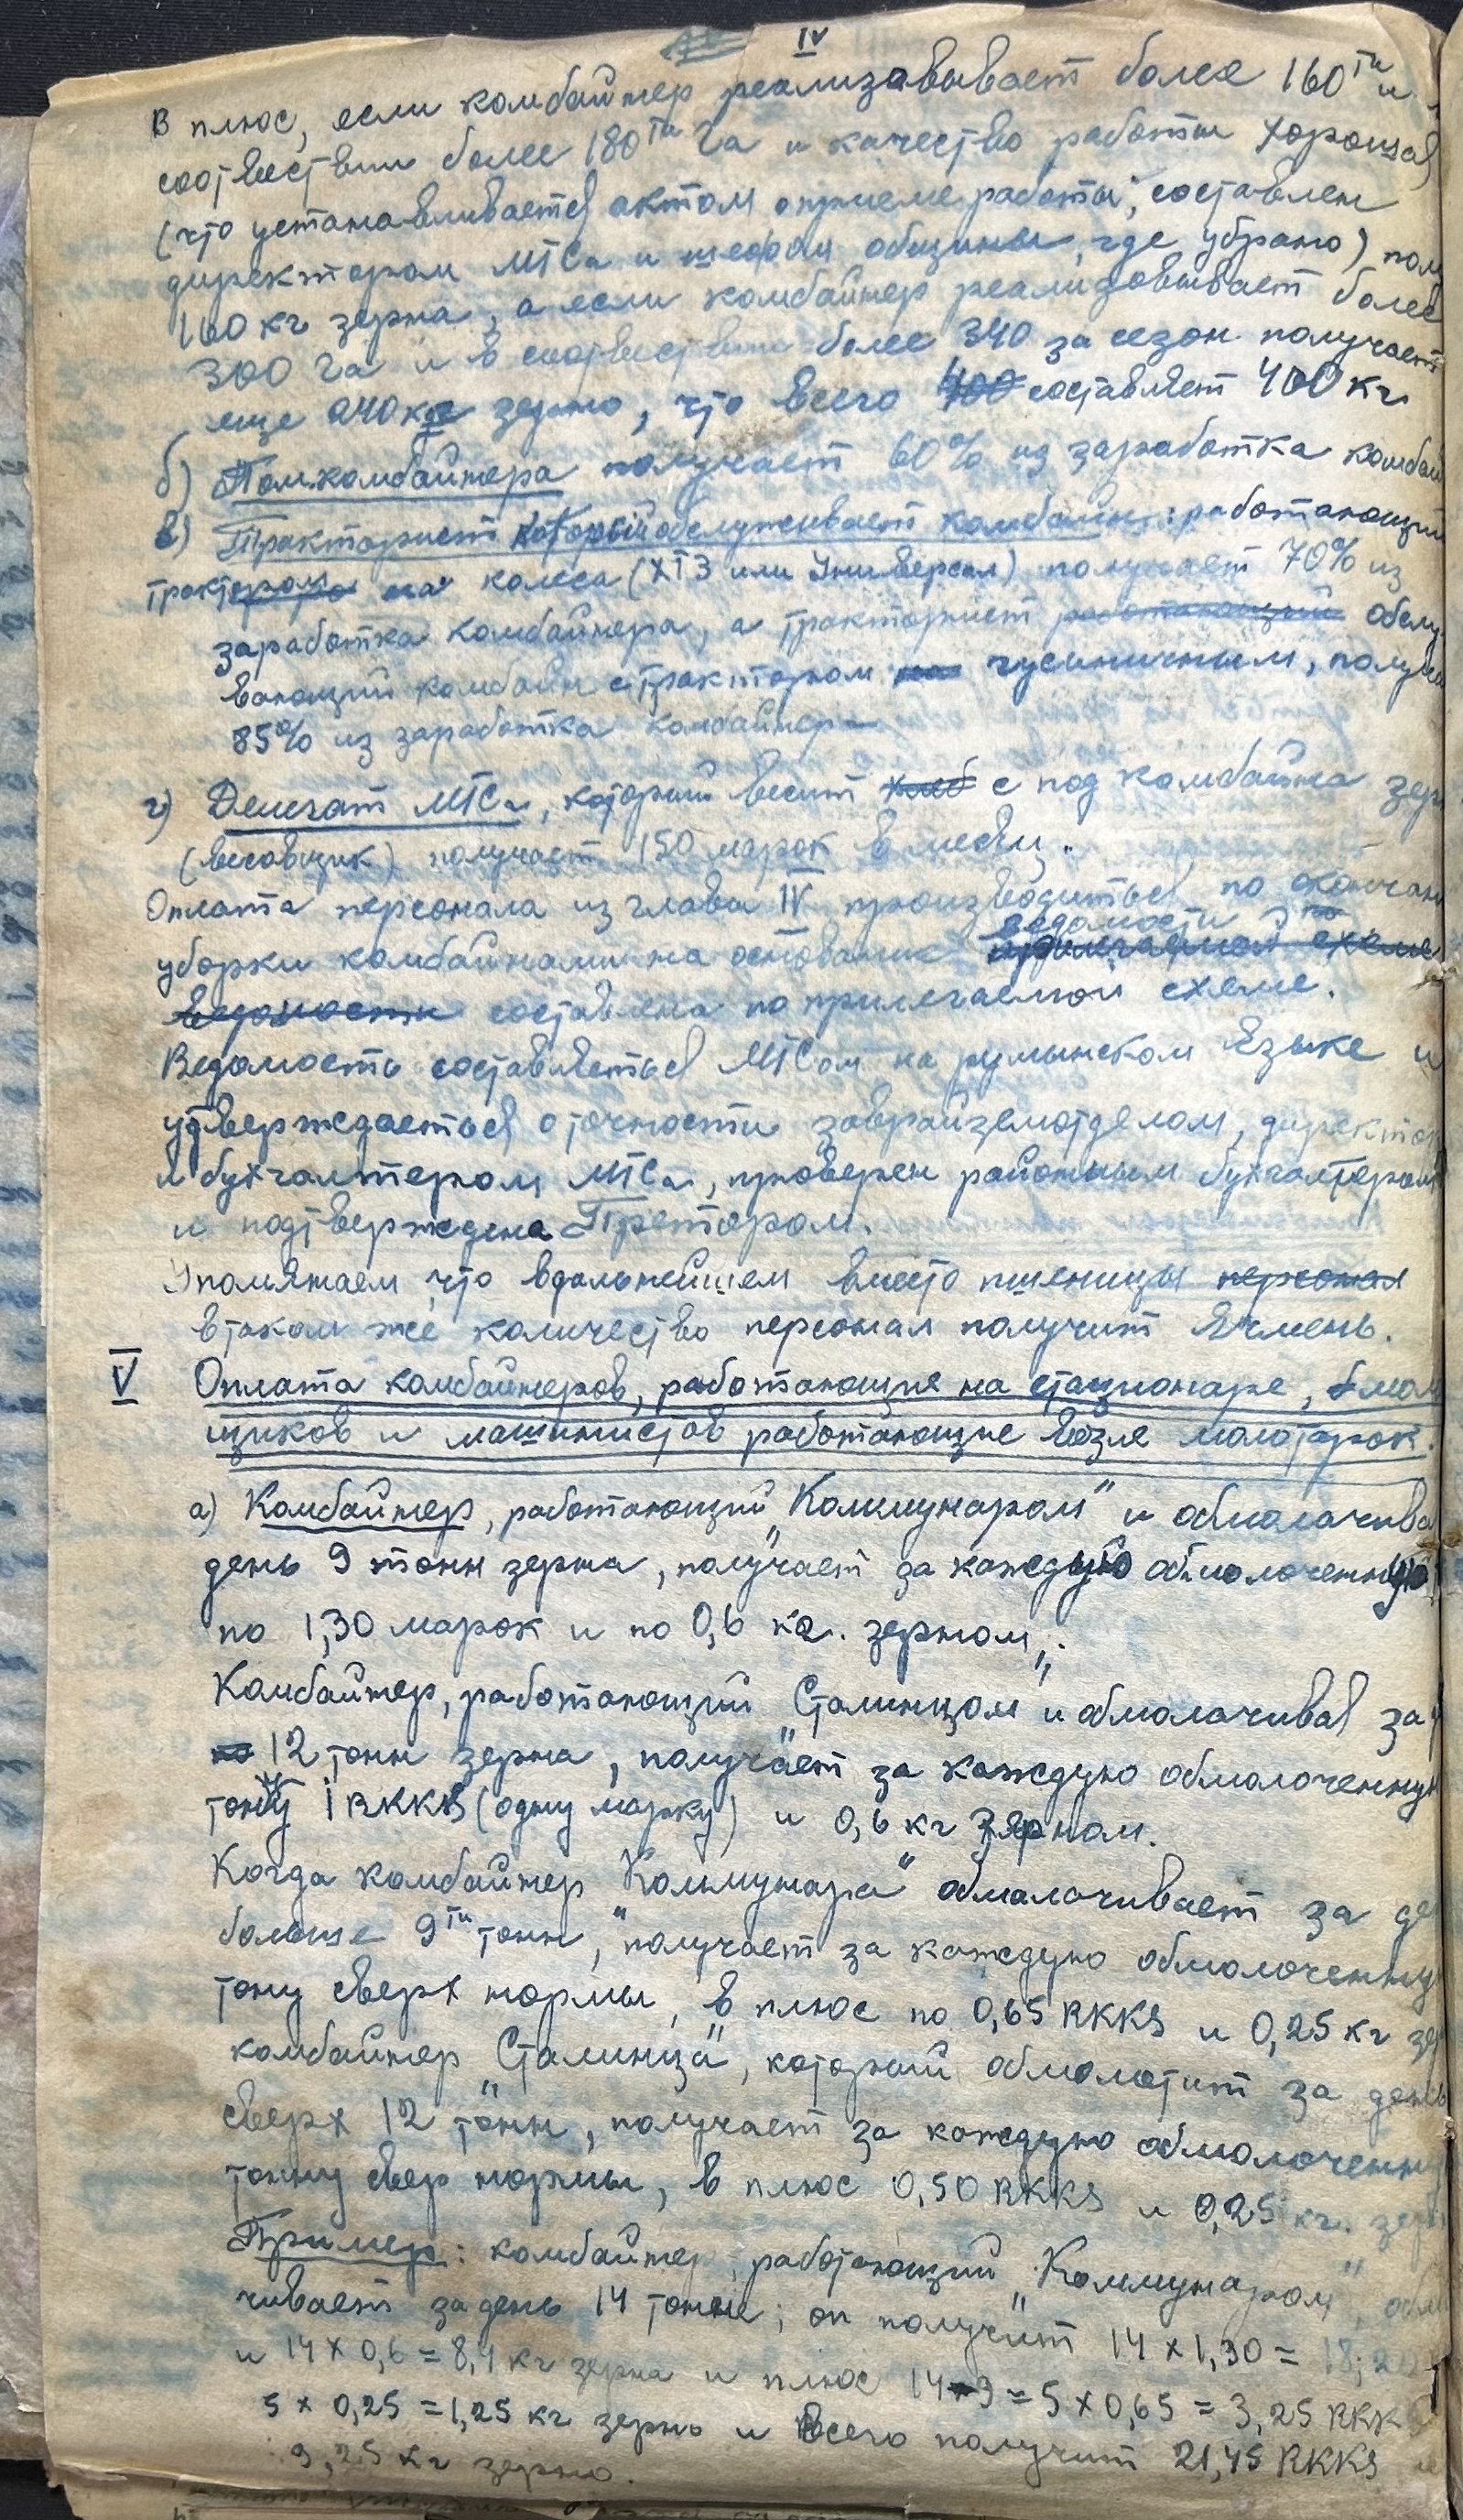 IV
В плюс, если комбайнер реализавывает более 160ти и
соотвествии более 180ти га и качество работы хорошая
(что устанавливается актом о приеме работы, составлен
директором МТСа и шефом общины, где убрано) пол
160 кг зерна, а если комбайнер реализовывает более
300 га и в соотвествии более 340 за сезон получает
еще 240 кг зерно, что всего 400 составляет 400 кг
б) Помкомбайнера получает 60% из заработка комбай
в) Тракторист который обслуживает комбайн: работающий
трактором на колеса (ХТЗ или Универсал) получает 70% из
заработка комбайнера, а тракторист работающий обслу
вающий комбайн с трактором на гусиничным, получа
85% из заработка комбайнера
г) Делегат МТСа, который весит хлеб с под комбайна зер
(весовщик) получает 150 марок в месяц.
Оплата персонала из глава IV производиться по окончан
ведомости
уборки комбайнами на основание прилегаемой схеме
ведомости составлена по прилегаемой схеме.
Ведомость составляеться МТСом на румынском языке и
утверждаеться о точности заврайземотделом, директор
и бухгалтером МТСа, проверен районным бухгалтером
и подтверждена Претором.
Упомянаем, что вдальнейшем вместо пшеницы персонал
в таком же количество персонал получит ячмень.
V Оплата комбайнеров, работающие на стационаре,
щиков и машинистов работающие возле молотарок.
а) Комбайнер, работающий „Коммунаром" и обмолачива
день 9 тонн зерна, получает за каждую обмолоченную
по 1,30 марок и по 0,6 кг. зерном.
Комбайнер, работающий „Сталинцом" и обмолачивая за
по 12 тонн зерна, получает за каждую обмолоченную
тону 1 RKKS (одну марку) и 0,6 кг зерном.
Когда комбайнер „Коммунара" обмолачивает за де
больше 9ти тонн, получает за каждую обмолоченну
тону сверх нормы, в плюс по 0,65 RKKS и 0,25 кг зер
комбайнер „Сталинца", который обмолотит за день
сверх 12 тонн, получает за каждую обмолоченну
тонну свер нормы, в плюс 0,50 RKKS и 0,25 кг. зер
Пример: комбайнер, работающий „Коммунаром", обмо
чивает за день 14 тонн; он получит 14 x 1,30 = 18,20
и 14 x 0,6 = 8,4 кг зерна и плюс 14-9 = 5 x 0,65 = 3,25 RKKS
5 x 0,25 = 1,25 кг зерно и всего получит 21,45 RKKS и
9,25 кг зерно.